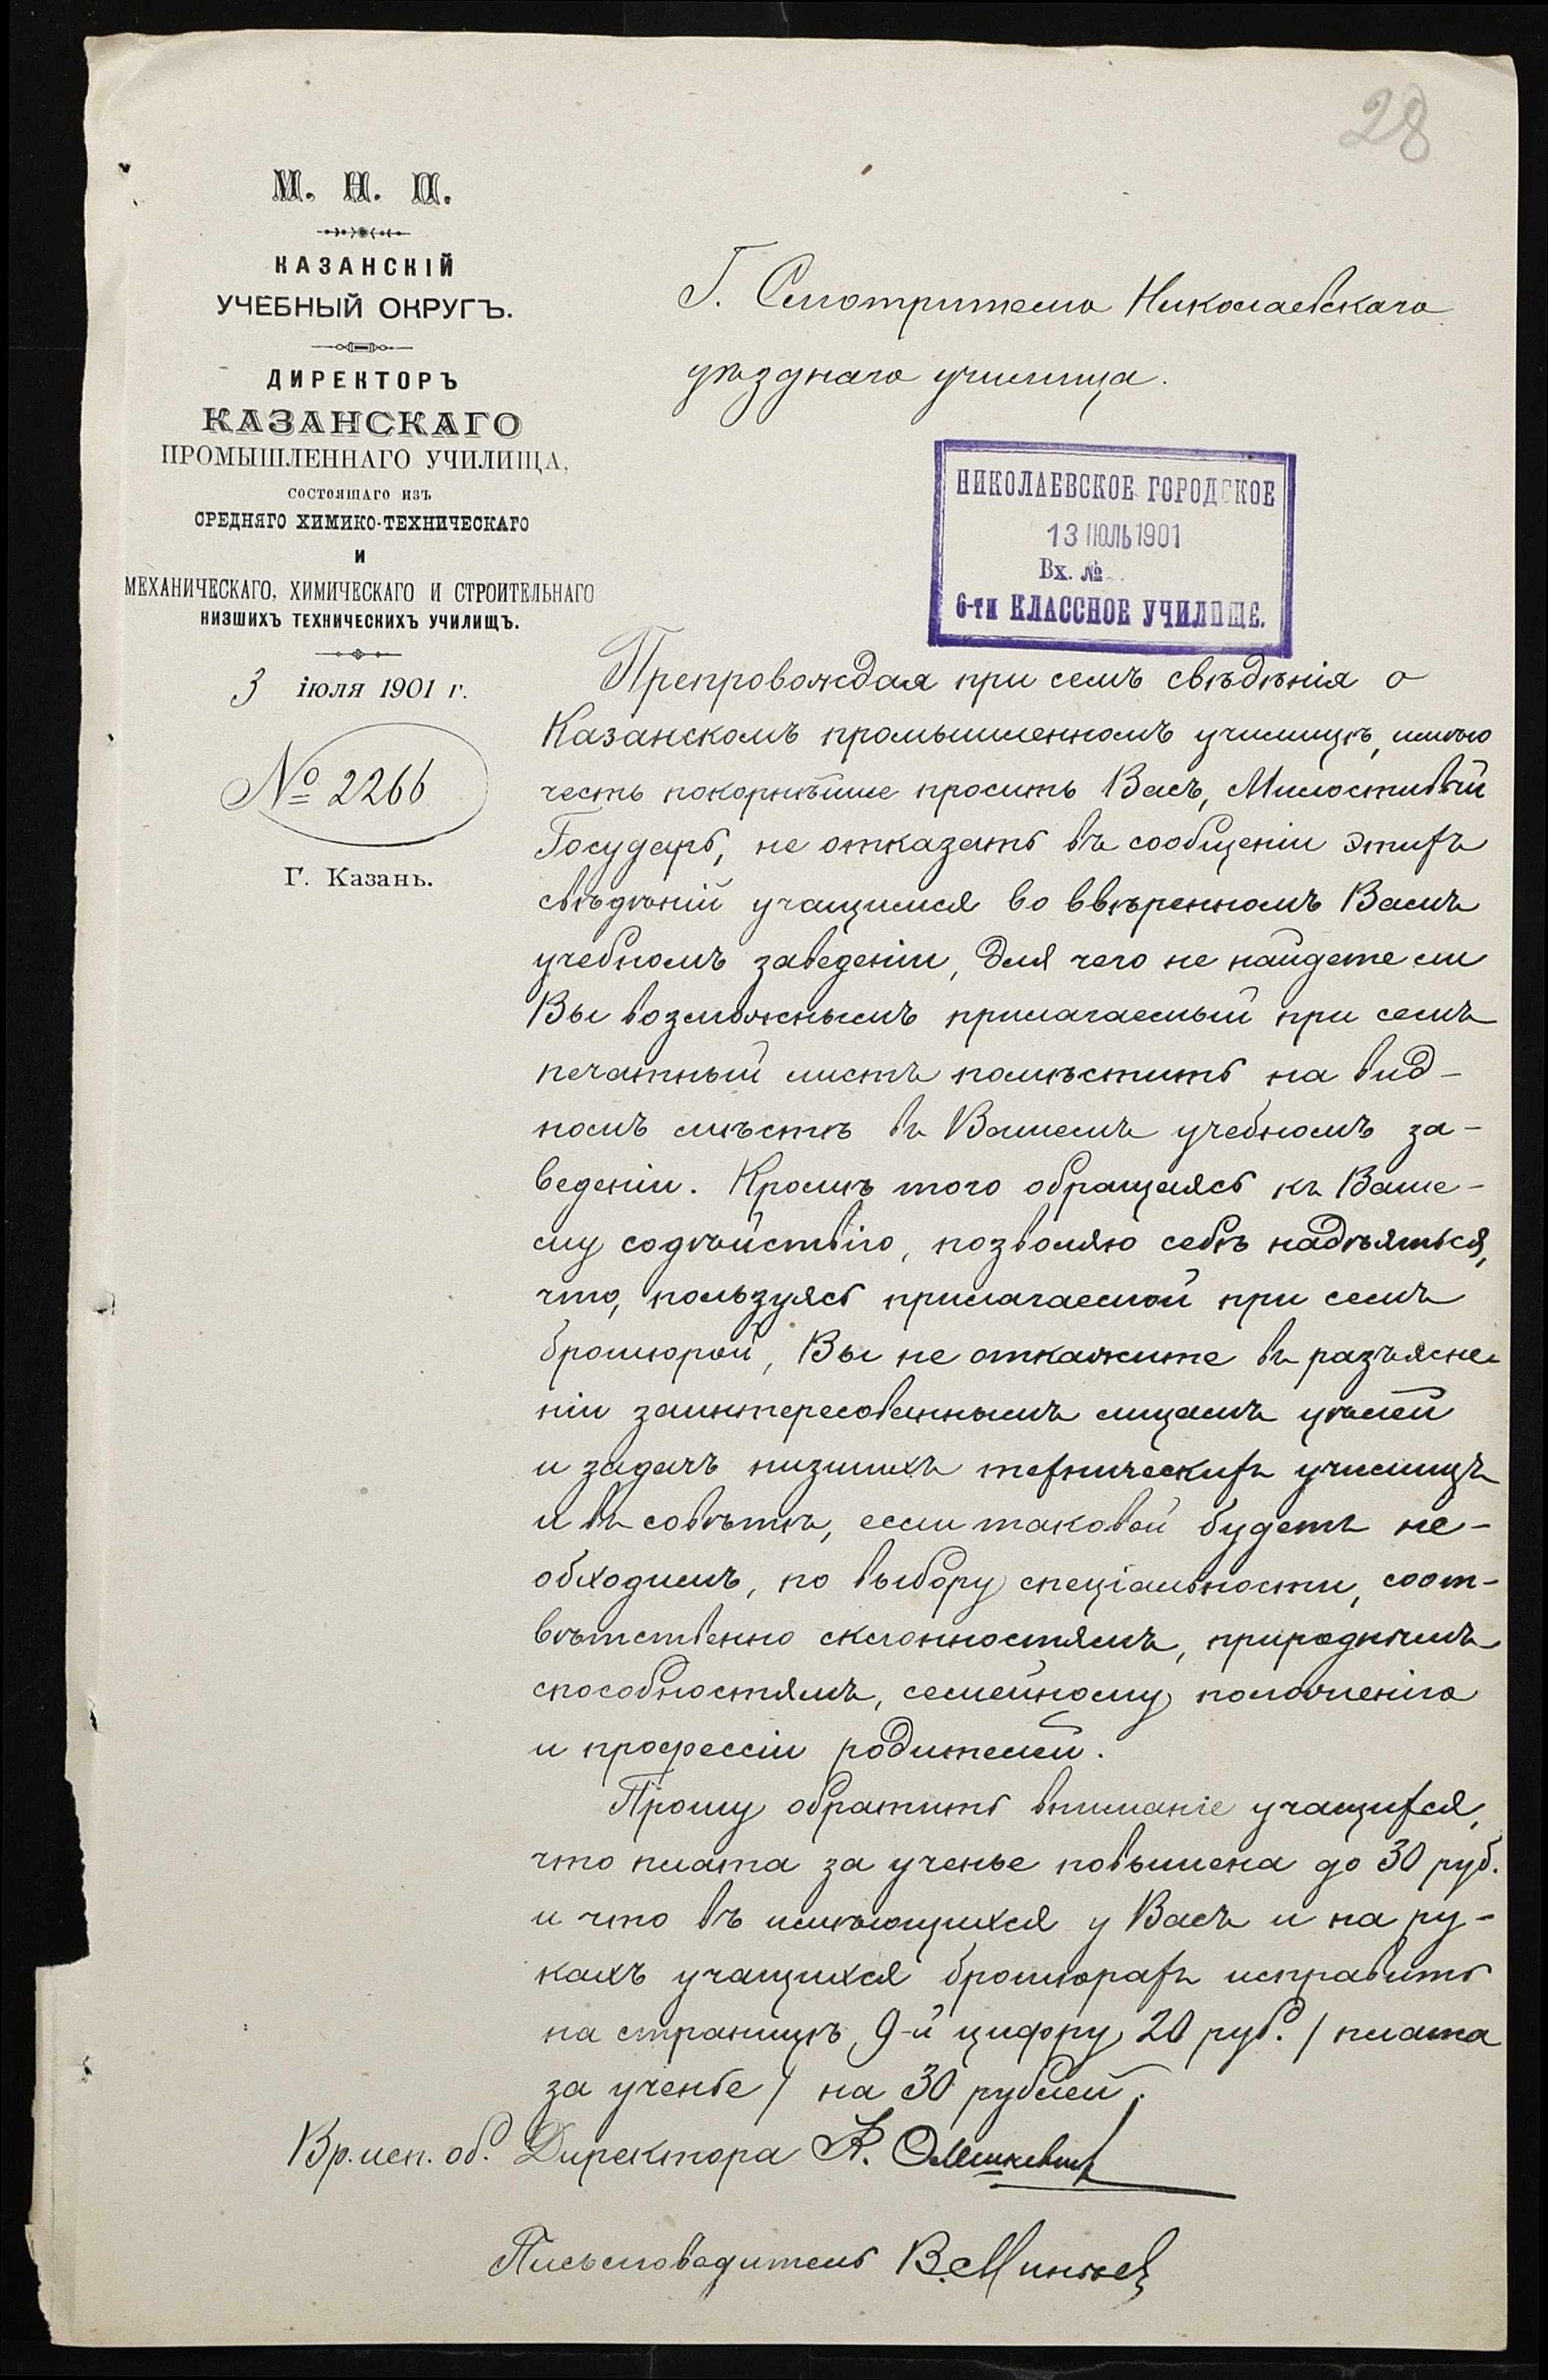 28
М. Н. П.
КАЗАНСКІЙ
УЧЕБНЫЙ ОКРУГЪ.
ДИРЕКТОРЪ
КАЗАНСКАГО
ПРОМЫШЛЕННАГО УЧИЛИЩА,
СОСТОЯЩАГО ИЗЪ
СРЕДНЯГО ХИМИКО-ТЕХНИЧЕСКАГО
И
МЕХАНИЧЕСКАГО, ХИМИЧЕСКАГО И СТРОИТЕЛЬНАГО
НИЗШИХЪ ТЕХНИЧЕСКИХЪ УЧИЛИЩЪ.
3 іюля 1901 г.
№ 2266
Г. Казань.
Г. Смотрителю Николаевскаго
уѣзднаго училища.
НИКОЛАЕВСКОЕ ГОРОДСКОЕ
13 ІЮЛЬ 1901
Вх. №
6-ти КЛАССНОЕ УЧИЛИЩЕ.
Препровождая при семъ свѣдѣнія о
Казанскомъ промышленномъ училищѣ, имѣю
честь покорнѣйше просить Васъ, Милостивый
Государь, не отказать въ сообщеніи этихъ
свѣдѣній учащимся во ввѣренномъ Вамъ
учебномъ заведеніи, для чего не найдете ли
Вы возможнымъ прилагаемый при семъ
печатный листъ помѣстить на вид-
номъ мѣстѣ въ Вашемъ учебномъ за-
веденіи. Кромѣ того обращаясь къ Ваше-
му содѣйствію, позволяю себѣ надѣяться,
что, пользуясь прилагаемой при семъ
брошюрой, Вы не откажите въ разъясне-
ніи заинтересованнымъ лицамъ цѣлей
и задачъ низшихъ техническихъ училищъ
и въ совѣтѣ, если таковой будетъ не-
обходимъ, по выбору спеціальности, соот-
вѣтственно склонностямъ, природнымъ
способностямъ, семейному положенію
и профессіи родителей.
Прошу обратить вниманіе учащихся,
что плата за ученье повышена до 30 руб.
и что въ имѣющихся у Васъ и на ру-
кахъ учащихся брошюрахъ исправить
на страницѣ 9-й цифру 20 руб. / плата
за ученье / на 30 рублей.
Вр. исп. об. Директора А. Олешкевичъ
Письмоводитель В. Минѣев